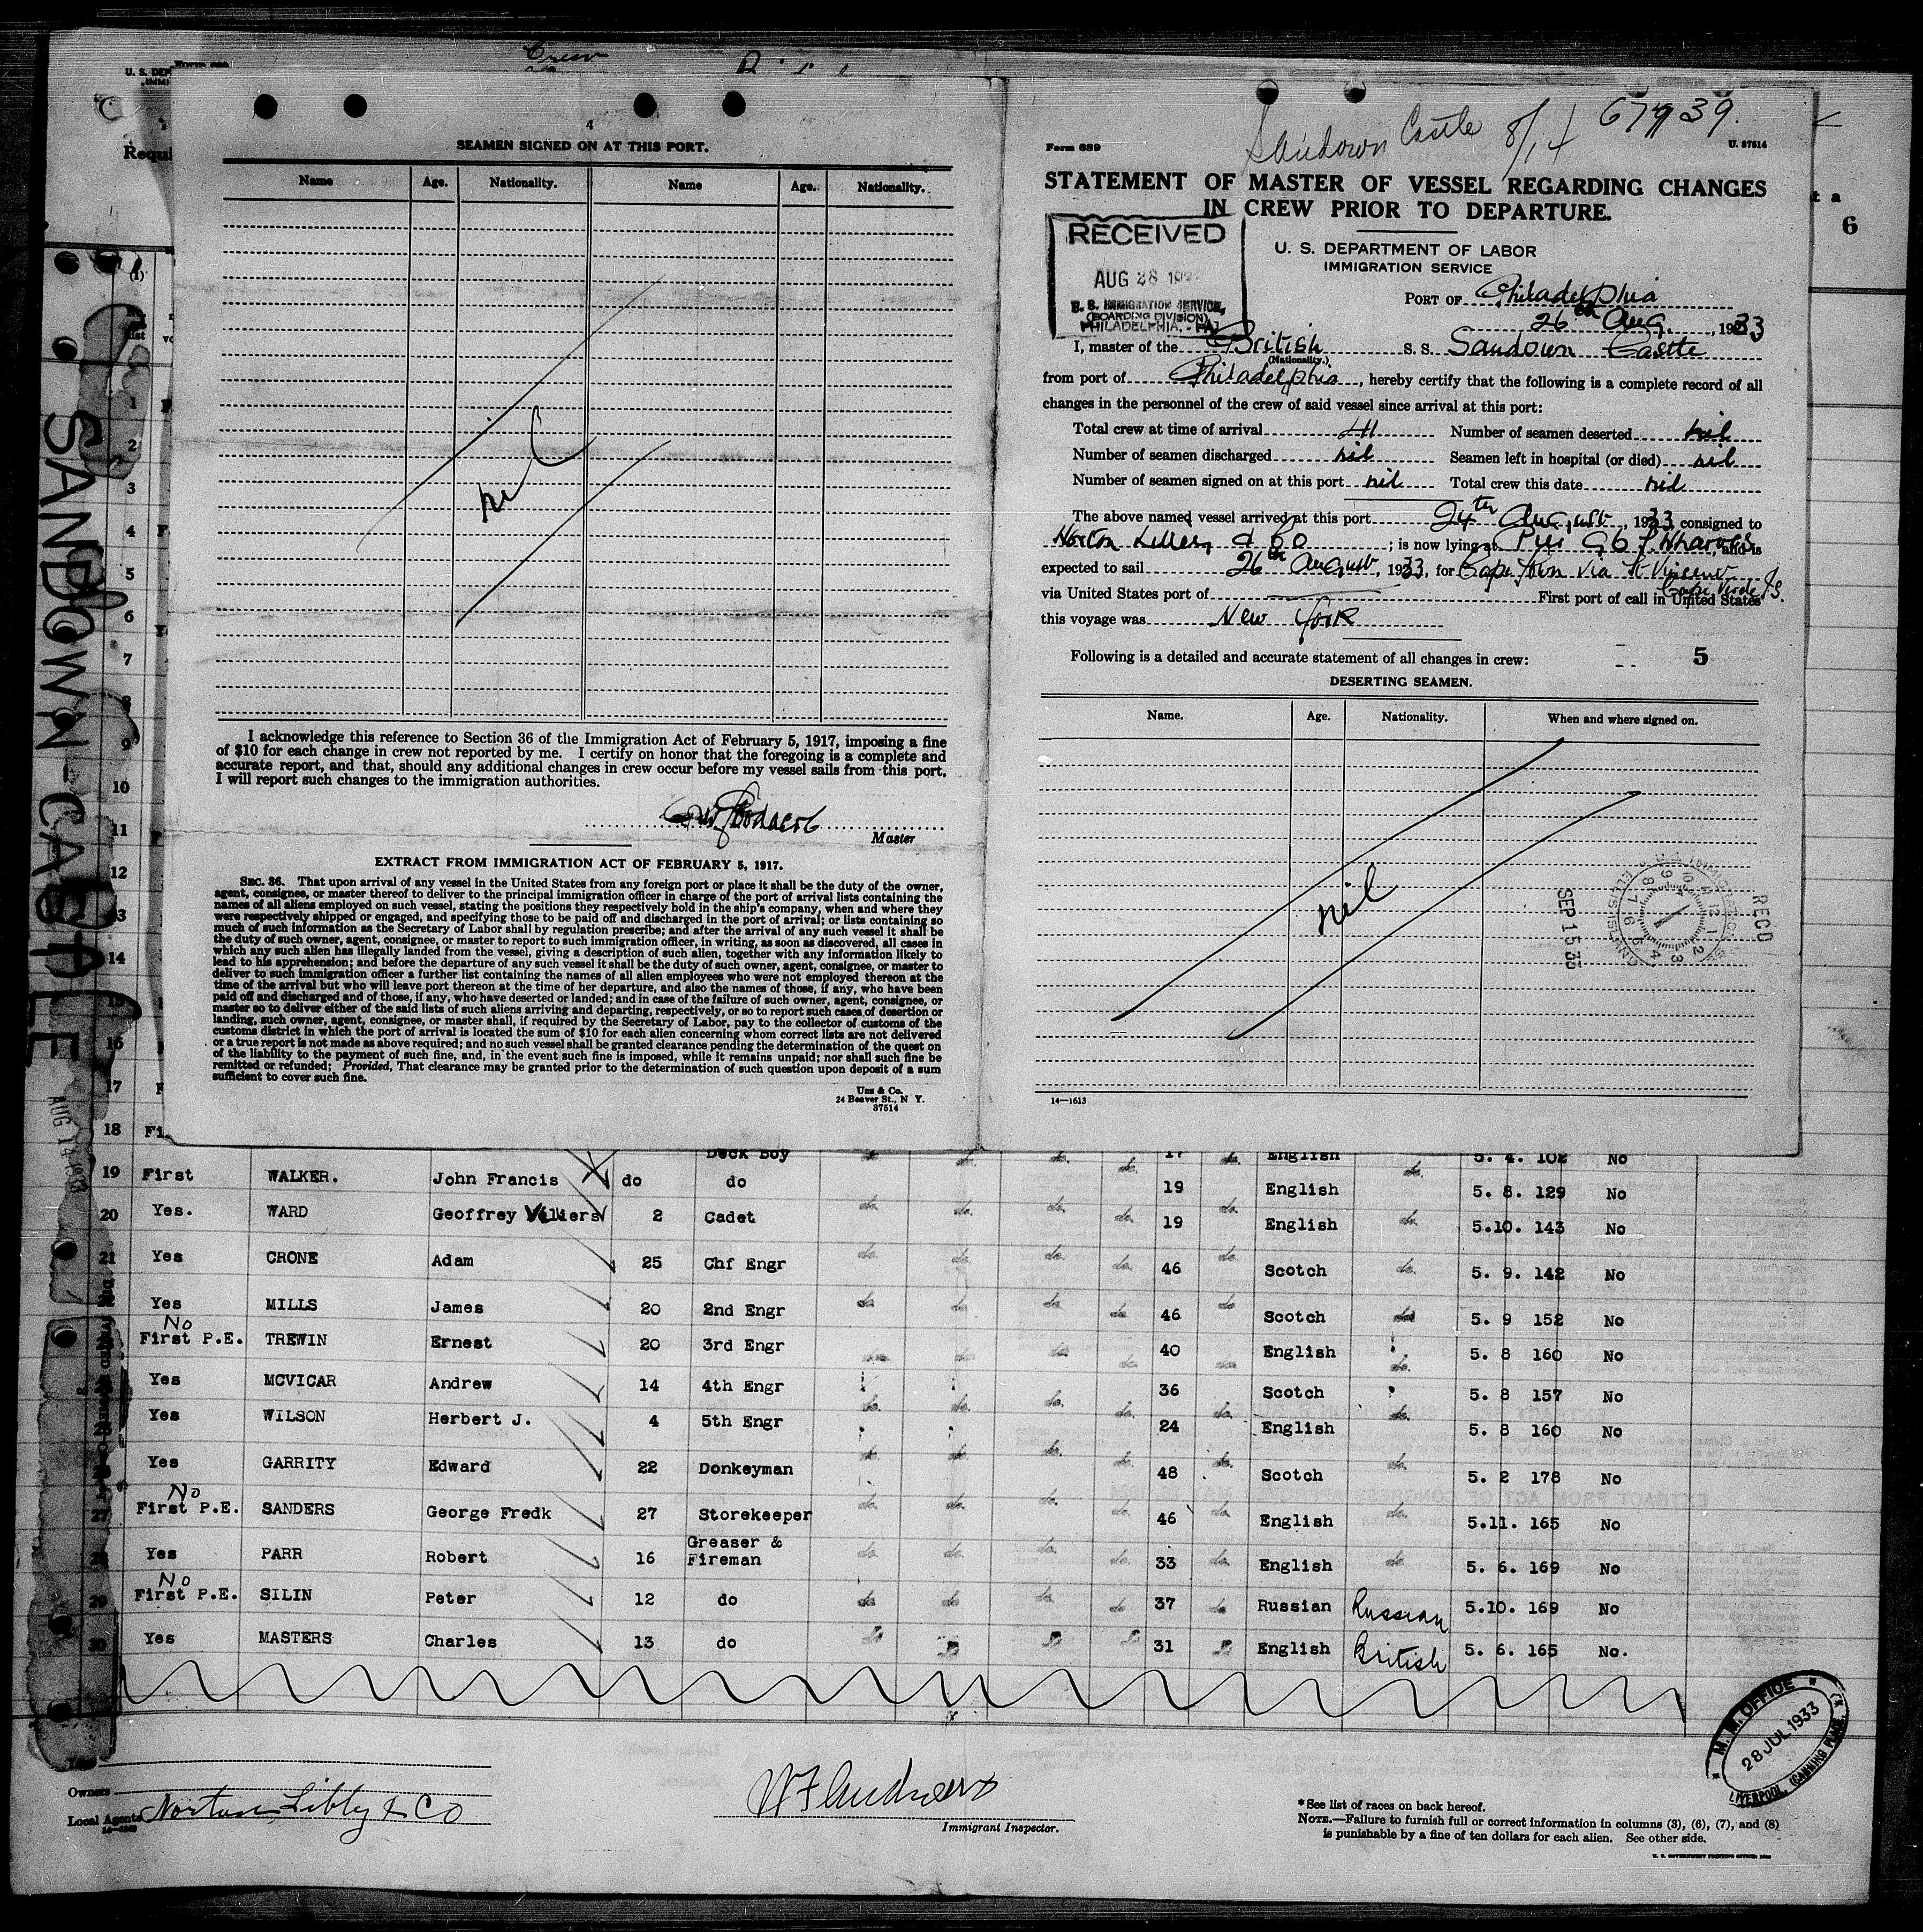 Crew
4
SEAMEN SIGNED ON AT THIS PORT.
Name Age. Nationality. Name Age. Nationality.
nil
I acknowledge this reference to Section 36 of the Immigration Act of February 5, 1917, imposing a fine
of $10 for each change in crew not reported by me. I certify on honor that the foregoing is a complete and
accurate report, and that, should any additional changes in crew occur before my vessel sails from this port,
I will report such changes to the immigration authorities.
Master
EXTRACT FROM IMMIGRATION ACT OF FEBRUARY 5, 1917.
SEC. 36. That upon arrival of any vessel in the United States from any foreign port or place it shall be the duty of the owner,
agent, consignee, or master thereof to deliver to the principal immigration officer in charge of the port of arrival lists containing the
names of all aliens employed on such vessel, stating the positions they respectively hold in the ship's company, when and where they
were respectively shipped or engaged, and specifying those to be paid off and discharged in the port of arrival; or lists containing so
much of such information as the Secretary of Labor shall by regulation prescribe; and after the arrival of any such vessel it shall be
the duty of such owner, agent, consignee, or master to report to such immigration officer, in writing, as soon as discovered, all cases in
which any such alien has illegally landed from the vessel, giving a description of such alien, together with any information likely to
lead to his apprehension; and before the departure of any such vessel it shall be the duty of such owner, agent, consignee, or master to
deliver to such immigration officer a further list containing the names of all alien employees who were not employed thereon at the
time of the arrival but who will leave port thereon at the time of her departure, and also the names of those, if any, who have been
paid off and discharged and of those, if any, who have deserted or landed; and in case of the failure of such owner, agent, consignee, or
master so to deliver either of the said lists of such aliens arriving and departing, respectively, or so to report such cases of desertion or
landing, such owner, agent, consignee, or master shall, if required by the Secretary of Labor, pay to the collector of customs of the
customs district in which the port of arrival is located the sum of $10 for each alien concerning whom correct lists are not delivered
or a true report is not made as above required; and no such vessel shall be granted clearance pending the determination of the quest on
of the liability to the payment of such fine, and, in the event such fine is imposed, while it remains unpaid; nor shall such fine be
remitted or refunded; Provided, That clearance may be granted prior to the determination of such question upon deposit of a sum
sufficient to cover such fine.
Unz & Co.
24 Beaver St., N Y.
37514
Sandown Castle 8/14
Form 689
U. 37514
STATEMENT OF MASTER OF VESSEL REGARDING CHANGES
IN CREW PRIOR TO DEPARTURE.
RECEIVED
AUG 28
U. S. IMMIGRATION SERVICE,
(BOARDING DIVISION)
PHILADELPHIA, - PA.
U. S. DEPARTMENT OF LABOR
IMMIGRATION SERVICE
PORT OF Philadelphia
26th Aug. , 1933
I, master of the British S. S. Sandown Castle
(Nationality.)
from port of Philadelphia , hereby certify that the following is a complete record of all
changes in the personnel of the crew of said vessel since arrival at this port:
Total crew at time of arrival 41 Number of seamen deserted nil
Number of seamen discharged nil Seamen left in hospital (or died) nil
Number of seamen signed on at this port nil Total crew this date nil
The above named vessel arrived at this port 24th August , 1933 consigned to
Norton Lilley & Co ; is now lying at Pier 96 S. Wharves and is
expected to sail 26th August, 1933, for Cape Town via St Vincent
Cape Verde Is.
via United States port of First port of call in United States
this voyage was New York
Following is a detailed and accurate statement of all changes in crew: 5
DESERTING SEAMEN.
Name. Age. Nationality. When and where signed on.
nil
RECD
SEP 15 33
14—1613
6
SANDOWN-CASTLE
AUG 14 1933
1
2
3
4
5
6
7
8
9
10
11
12
13
14
15
16
17
18 Deck Boy 17 do. English 5. 4. 102 No
19 First WALKER. John Francis do do 19 English 5. 8. 129 No
20 Yes. WARD Geoffrey Villiers 2 Cadet do. do. do. do. 19 do. English do. 5.10. 143 No
21 Yes CRONE Adam 25 Chf Engr do. do. do. do. 46 do. Scotch do. 5. 9. 142 No
Yes MILLS James 20 2nd Engr do do. do. do 46 do Scotch do 5. 9 152 No
No
First P.E. TREWIN Ernest 20 3rd Engr do do. do do. 40 do English do. 5. 8 160 No
Yes MCVICAR Andrew 14 4th Engr do. do. do. do. 36 do. Scotch do. 5. 8 157 No
Yes WILSON Herbert J. 4 5th Engr do do do. do. 24 do. English 5. 8 160 No
Yes GARRITY Edward 22 Donkeyman 48 Scotch do. 5. 2 178 No
No
27 First P.E. SANDERS George Fredk 27 Storekeeper do. do. do. do. 46 do. English do. 5.11. 165 No
28 Yes PARR Robert 16 Greaser & Fireman do. do. do. do. 33 do. English do 5. 6. 169 No
No
29 First P.E. SILIN Peter 12 do do do do. do 37 do Russian Russian 5.10. 169 No
30 Yes MASTERS Charles 13 do 31 English British 5. 6. 165 No.
Owners
Local Agents Norton Libly & Co
Immigrant Inspector.
*See list of races on back hereof.
NOTE.—Failure to furnish full or correct information in columns (3), (6), (7), and (8)
is punishable by a fine of ten dollars for each alien. See other side.
M. M. OFFICE
28 JUL 1933
LIVERPOOL, (CANNING PLACE.)